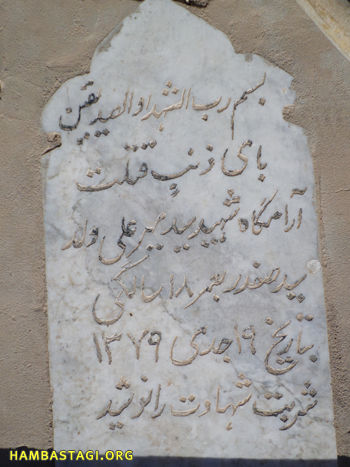 بسم رب الشهدا و الصدیقین
بای ذنب قتلت
آرامگاه شهید سید میر علی ولد
سید صفدر بعمر ۱۸ سالگی
بتاریخ ۱۹ جدی ۱۳۷۹
شربت شهادت را نوشید
HAMBASTAGI.ORG